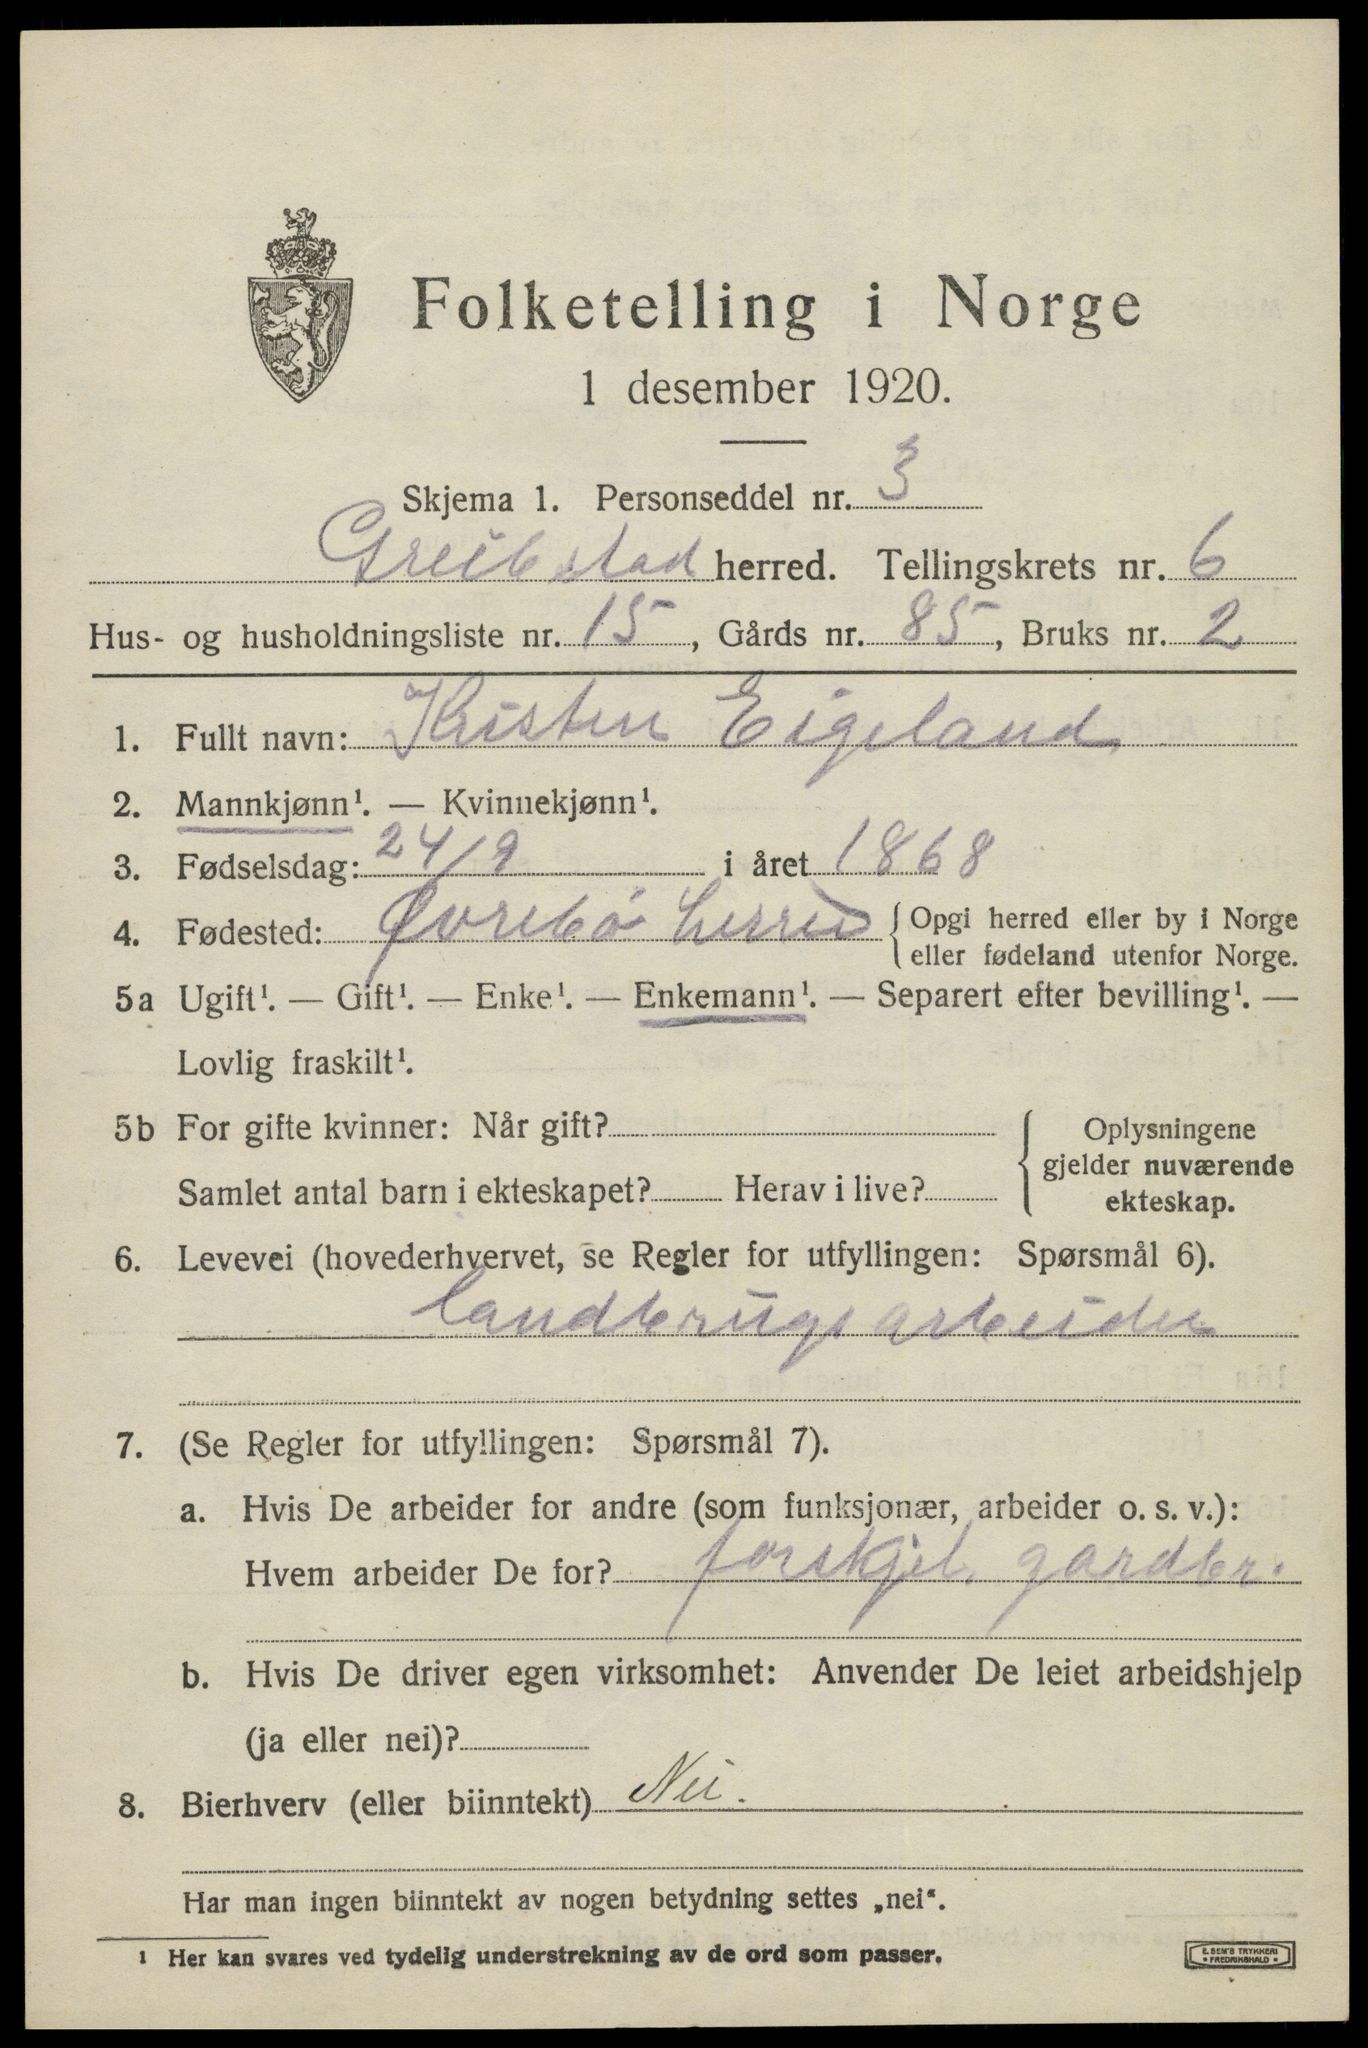 Folketelling i Norge
1 desember 1920.
Skjema 1. Personseddel nr. 3
Greibstad herred. Tellingskrets nr. 6
Hus- og husholdningsliste nr. 15, Gårds nr. 85, Bruks nr. 2
1. Fullt navn: Kristen Eigeland
2. Mannkjønn¹. — Kvinnekjønn¹.
3. Fødselsdag: 24/9 i året 1868
4. Fødested: Øvrebö herred { Opgi herred eller by i Norge
eller fødeland utenfor Norge.
5a Ugift¹. — Gift¹. — Enke¹. — Enkemann¹. — Separert efter bevilling¹. —
Lovlig fraskilt¹.
5b For gifte kvinner: Når gift?
Samlet antal barn i ekteskapet? Herav i live?
Oplysningene
gjelder nuværende
ekteskap.
6. Levevei (hovederhvervet, se Regler for utfyllingen: Spørsmål 6).
landbrugsarbeider
7. (Se Regler for utfyllingen: Spørsmål 7).
a. Hvis De arbeider for andre (som funksjonær, arbeider o. s. v.):
Hvem arbeider De for? forskjel. gardbr.
b. Hvis De driver egen virksomhet: Anvender De leiet arbeidshjelp
(ja eller nei)?
8. Bierhverv (eller biinntekt) Nei.
Har man ingen biinntekt av nogen betydning settes „nei“.
¹ Her kan svares ved tydelig understrekning av de ord som passer.
E. SEM'S TRYKKERI
• FREDRIKSHALD •